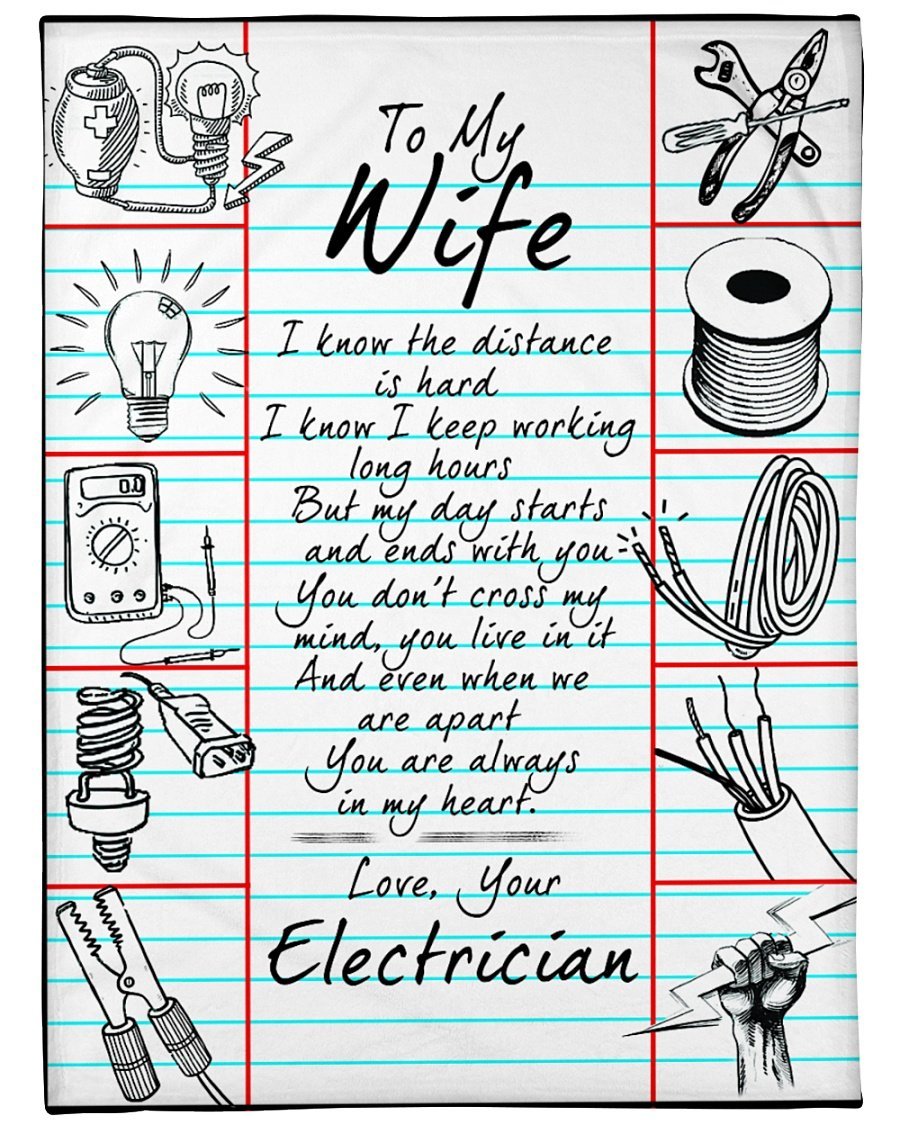 To My
Wife
I know the distance
is hard
I know I keep working
long hours
But my day starts
and ends with you
You don't cross my
mind, you live in it
And even when we
are apart
You are always
in my heart.
Love, Your
Electrician
0.0